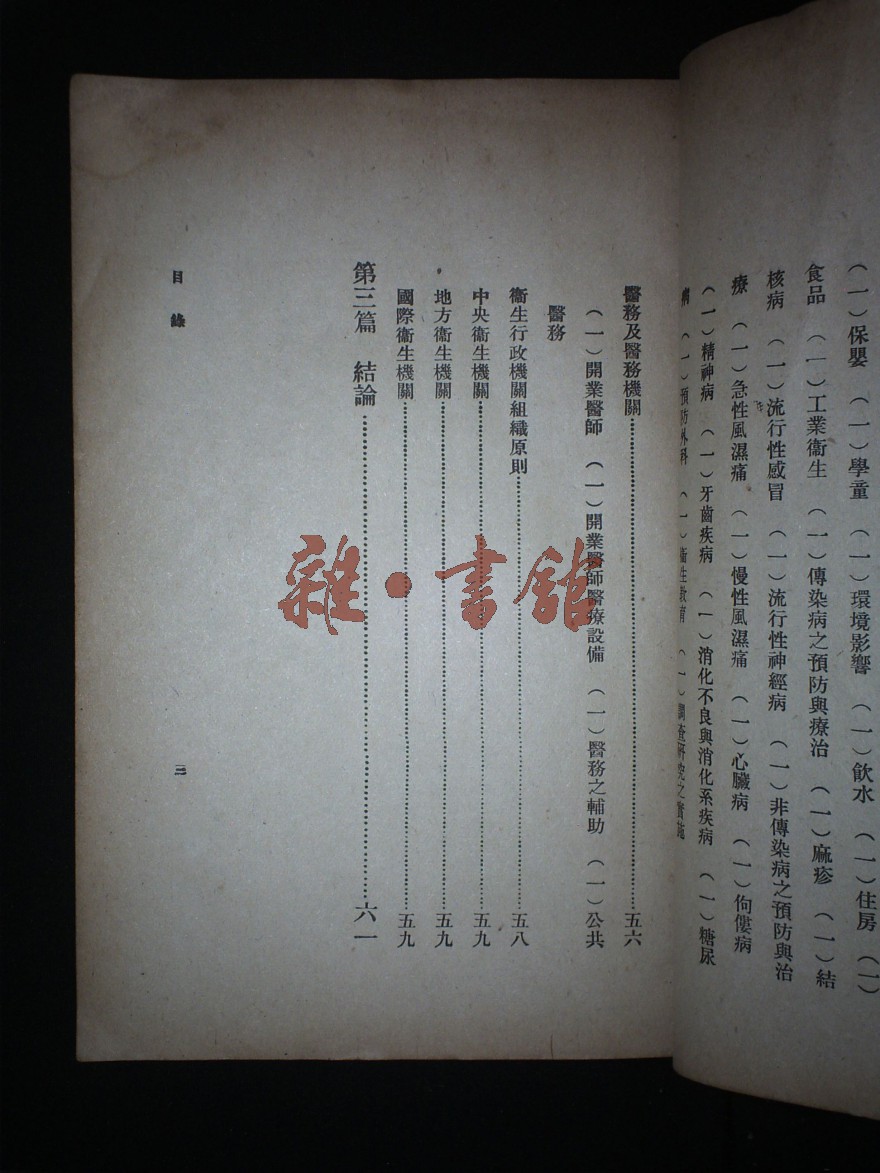 （一）保嬰　（一）學童　（一）環境影響　（一）飲水　（一）住房　（一）
食品　（一）工業衞生　（一）傳染病之預防與療治　（一）麻疹　（一）結
核病　（一）流行性感冒　（一）流行性神經病　（一）非傳染病之預防與治
療　（一）急性風濕痛　（一）慢性風濕痛　（一）心臟病　（一）佝僂病
（一）精神病　（一）牙齒疾病　（一）消化不良與消化系疾病　（一）糖尿
病　（一）預防外科　（一）衞生教育　（一）調查研究之實施
醫務及醫務機關……五六
（一）開業醫師　（一）開業醫師醫療設備　（一）醫務之輔助　（一）公共
醫務
衞生行政機關組織原則……五八
中央衞生機關……五九
地方衞生機關……五九
國際衞生機關……五九
第三篇　結論……六一
目錄
三
雜·書館